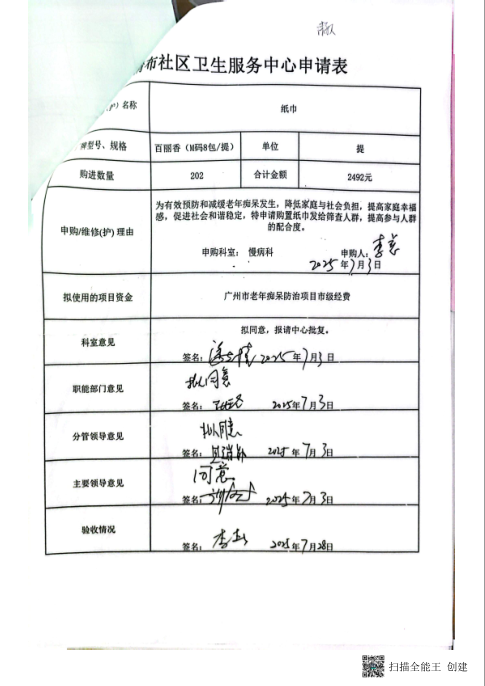 布社区卫生服务中心申请表
名称
纸巾
型号、规格
百丽香（M码8包/提）
单位
提
购进数量
202
合计金额
2492元
申购/维修(护) 理由
为有效预防和减缓老年痴呆发生，降低家庭与社会负担，提高家庭幸福
感，促进社会和谐稳定，特申请购置纸巾发给筛查人群，提高参与人群
的配合度。
申购科室： 慢病科
申购人：李
2025 年7月3日
拟使用的项目资金
广州市老年痴呆防治项目市级经费
科室意见
拟同意，报请中心批复。
签名： 2025 年7月3日
职能部门意见
拟同意
签名： 2025年7月3日
分管领导意见
拟同意
签名： 2025 年7月3日
主要领导意见
同意
签名： 2025年7月3日
验收情况
签名：李 2025 年7月28日
扫描全能王 创建